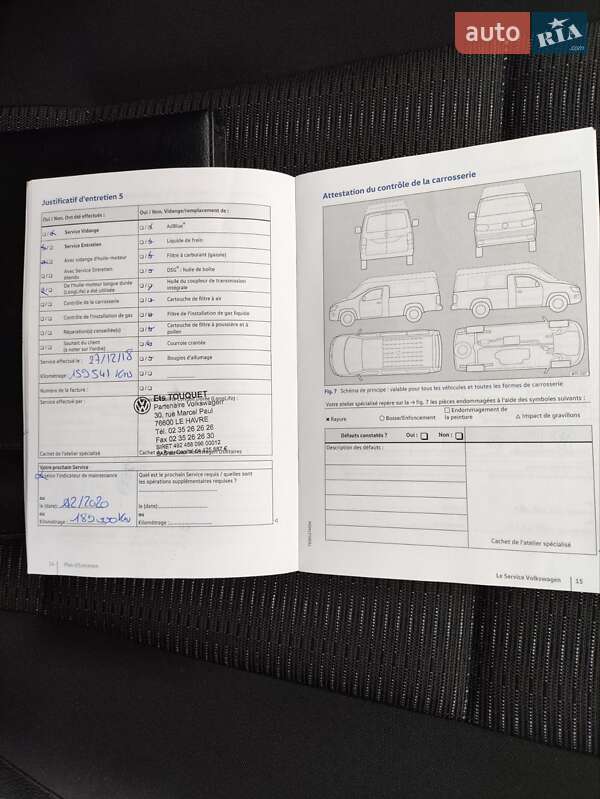 auto RIA .com
Justificatif d'entretien 5
Oui / Non. Ont été effectués :
Service Vidange
Service Entretien
Avec vidange d'huile-moteur
Avec Service Entretien étendu
De l'huile-moteur longue durée (LongLife) a été utilisée
Contrôle de la carrosserie
Contrôle de l'installation de gaz
Réparation(s) conseillée(s)
Souhait du client (à noter sur l'ordre)
Service effectué le : 27/12/18
Kilométrage : 159 541 Km
Numéro de la facture :
Service effectué par :
Cachet de l'atelier spécialisé
Oui / Non. Vidange/remplacement de :
AdBlue®
Liquide de frein
Filtre à carburant (gazole)
DSG® : huile de boîte
Huile du coupleur de transmission intégrale
Cartouche de filtre à air
Filtre de l'installation de gaz liquide
Cartouche de filtre à poussière et à pollen
Courroie crantée
Bougies d'allumage
Ets TOUQUET
Partenaire Volkswagen
30, rue Marcel Paul
76600 LE HAVRE
Tél. 02 35 26 26 26
Fax 02 35 26 26 30
SIRET 492 458 090 00012
Votre prochain Service
Selon l'indicateur de maintenance
ou
le (date) : 12/2020
ou
Kilométrage : 189 000 Km
Quel est le prochain Service requis / quelles sont les opérations supplémentaires requises ?
le (date) :
ou
Kilométrage :
14 Plan d'Entretien
Attestation du contrôle de la carrosserie
Fig. 7 Schéma de principe : valable pour tous les véhicules et toutes les formes de carrosserie
Votre atelier spécialisé repère sur la → fig. 7 les pièces endommagées à l'aide des symboles suivants :
× Rayure
○ Bosse/Enfoncement
□ Endommagement de la peinture
△ Impact de gravillons
Défauts constatés ? Oui : Non :
Description des défauts :
Cachet de l'atelier spécialisé
Le Service Volkswagen 15